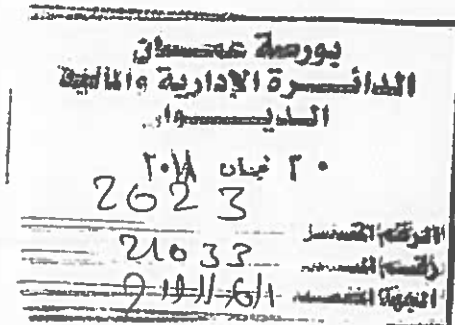 بورصة عمان
الدائرة الإدارية والمالية
الديوان
٢٠ نيسان ٢٠١٨
2023
الرقم المتسلسل
21033
رقم
الجهة المختصة